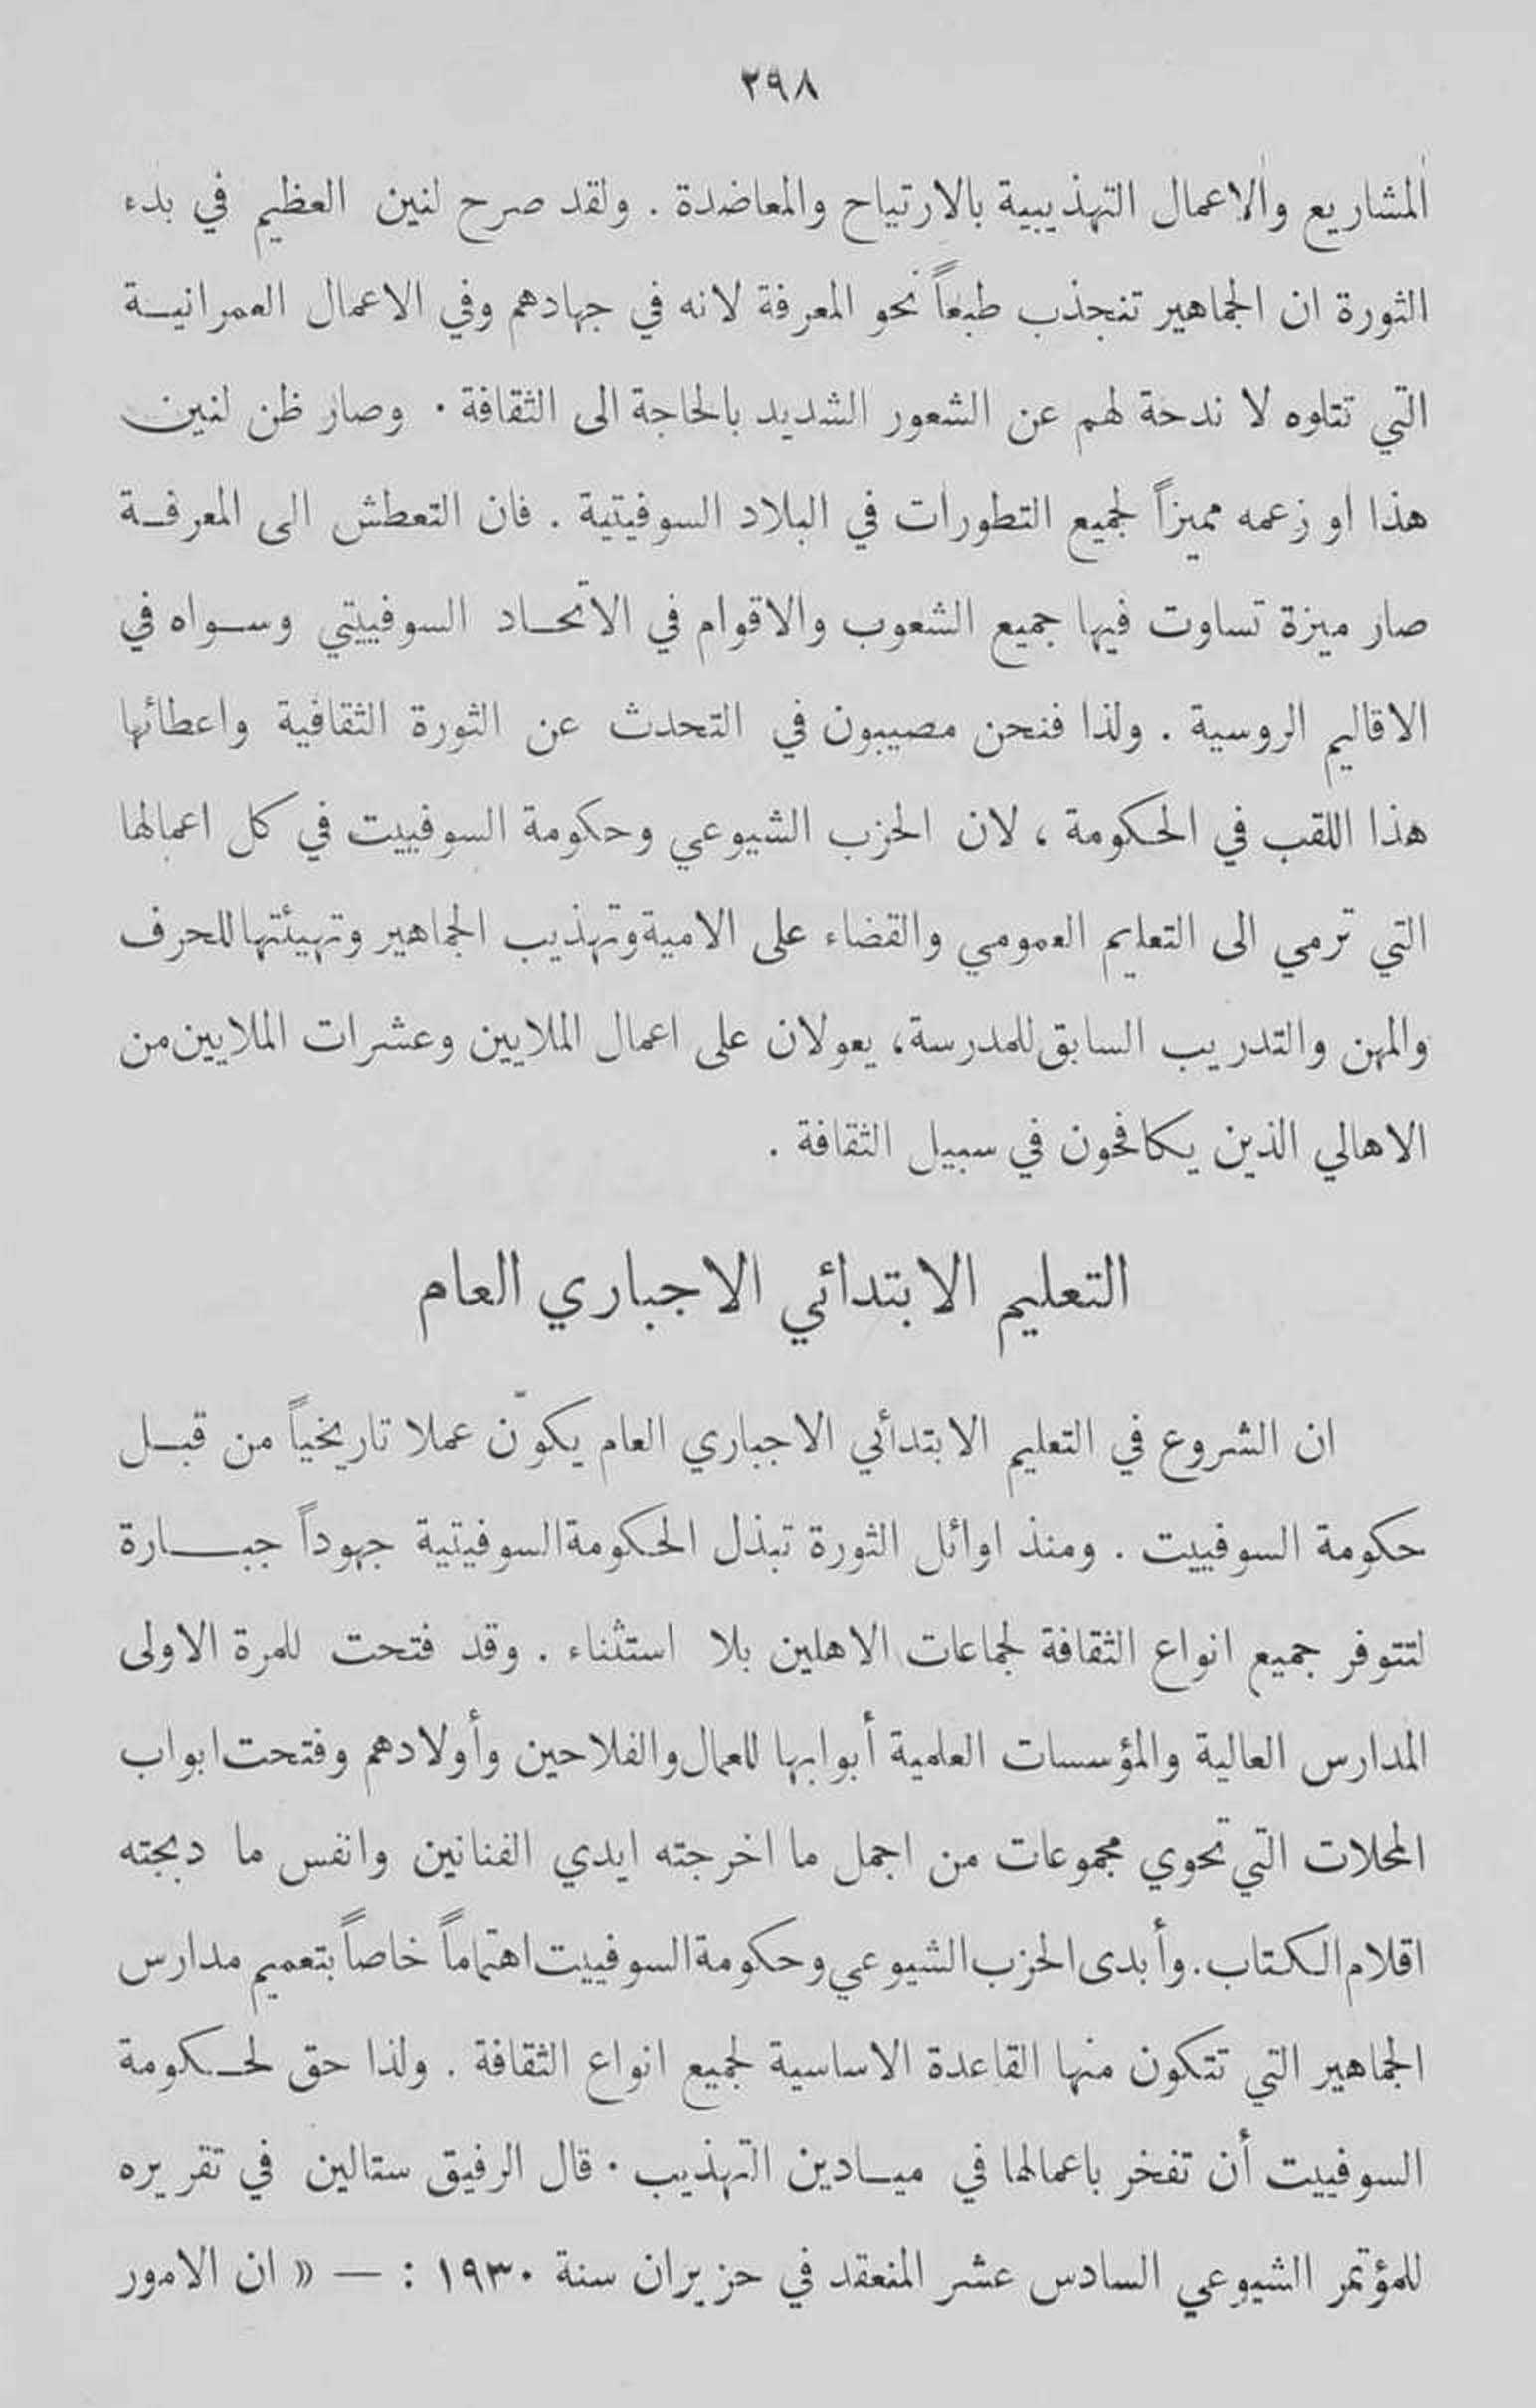 ٢٩٨
المشاريع والاعمال التهذيبية بالارتياح والمعاضدة . ولقد صرح لنين العظيم في بدء
الثورة ان الجماهير تنجذب طبعاً نحو المعرفة لانه في جهادهم وفي الاعمال العمرانية
التي تتلوه لا ندحة لهم عن الشعور الشديد بالحاجة الى الثقافة . وصار ظن لنين
هذا او زعمه مميزاً لجميع التطورات في البلاد السوفيتية . فان التعطش الى المعرفة
صار ميزة تساوت فيها جميع الشعوب والاقوام في الاتحاد السوفييتي وسواه في
الاقاليم الروسية . ولذا فنحن مصيبون في التحدث عن الثورة الثقافية واعطائها
هذا اللقب في الحكومة ، لان الحزب الشيوعي وحكومة السوفييت في كل اعمالها
التي ترمي الى التعليم العمومي والقضاء على الامية وتهذيب الجماهير وتهيئتها للحرف
والمهن والتدريب السابق للمدرسة ، يعولان على اعمال الملايين وعشرات الملايين من
الاهالي الذين يكافحون في سبيل الثقافة .
التعليم الابتدائي الاجباري العام
ان الشروع في التعليم الابتدأئي الاجباري العام يكوّن عملا تاريخياً من قبل
حكومة السوفييت . ومنذ اوائل الثورة تبذل الحكومة السوفيتية جهوداً جبارة
لتتوفر جميع انواع الثقافة لجماعات الاهلين بلا استثناء . وقد فتحت للمرة الاولى
المدارس العالية والمؤسسات العلمية أبوابها للعمال والفلاحين وأولادهم وفتحت ابواب
المحلات التي تحوي مجموعات من اجمل ما اخرجته ايدي الفنانين وانفس ما دبجته
اقلام الكتاب . وأبدى الحزب الشيوعي وحكومة السوفييت اهتماماً خاصاً بتعميم مدارس
الجماهير التي تتكون منها القاعدة الاساسية لجميع انواع الثقافة . ولذا حق لحكومة
السوفييت أن تفخر باعمالها في ميادين التهذيب . قال الرفيق ستالين في تقريره
للمؤتمر الشيوعي السادس عشر المنعقد في حزيران سنة ١٩٣٠ : — « ان الامور